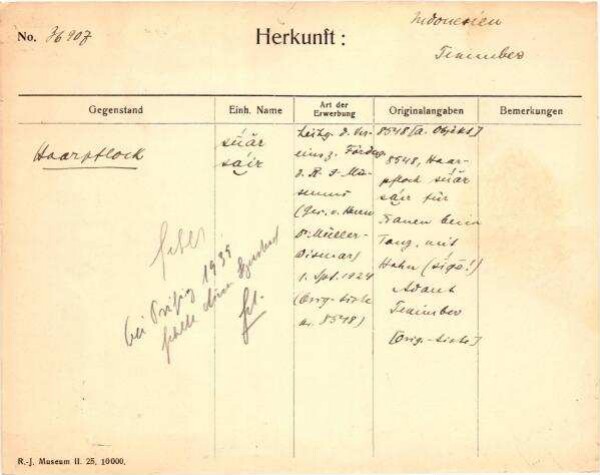 No. 36907
Herkunft:
Indonesien
Tenimber
Gegenstand
Einh. Name
Art der Erwerbung
Originalangaben
Bemerkungen
Haarpflock
súar
sáir
Leihg. d. Ver-
einsz. Förderg.
d. R. J. Mu-
seums
(Ges. v. Herrn
Dr. Müller-
Wismar)
1. Spt. 1924
(Orig.-Liste
nr. 8548)
8548 [a. Objekt]
8548, Haar-
pflock súar
sáir für
Frauen beim
Tanz, mit
Hahn (sigo!)
Adaut
Tenimber
[Orig.-Liste]
fehlt
bei Prüfung 1935
fehlt
R.-J. Museum II. 25. 10000.